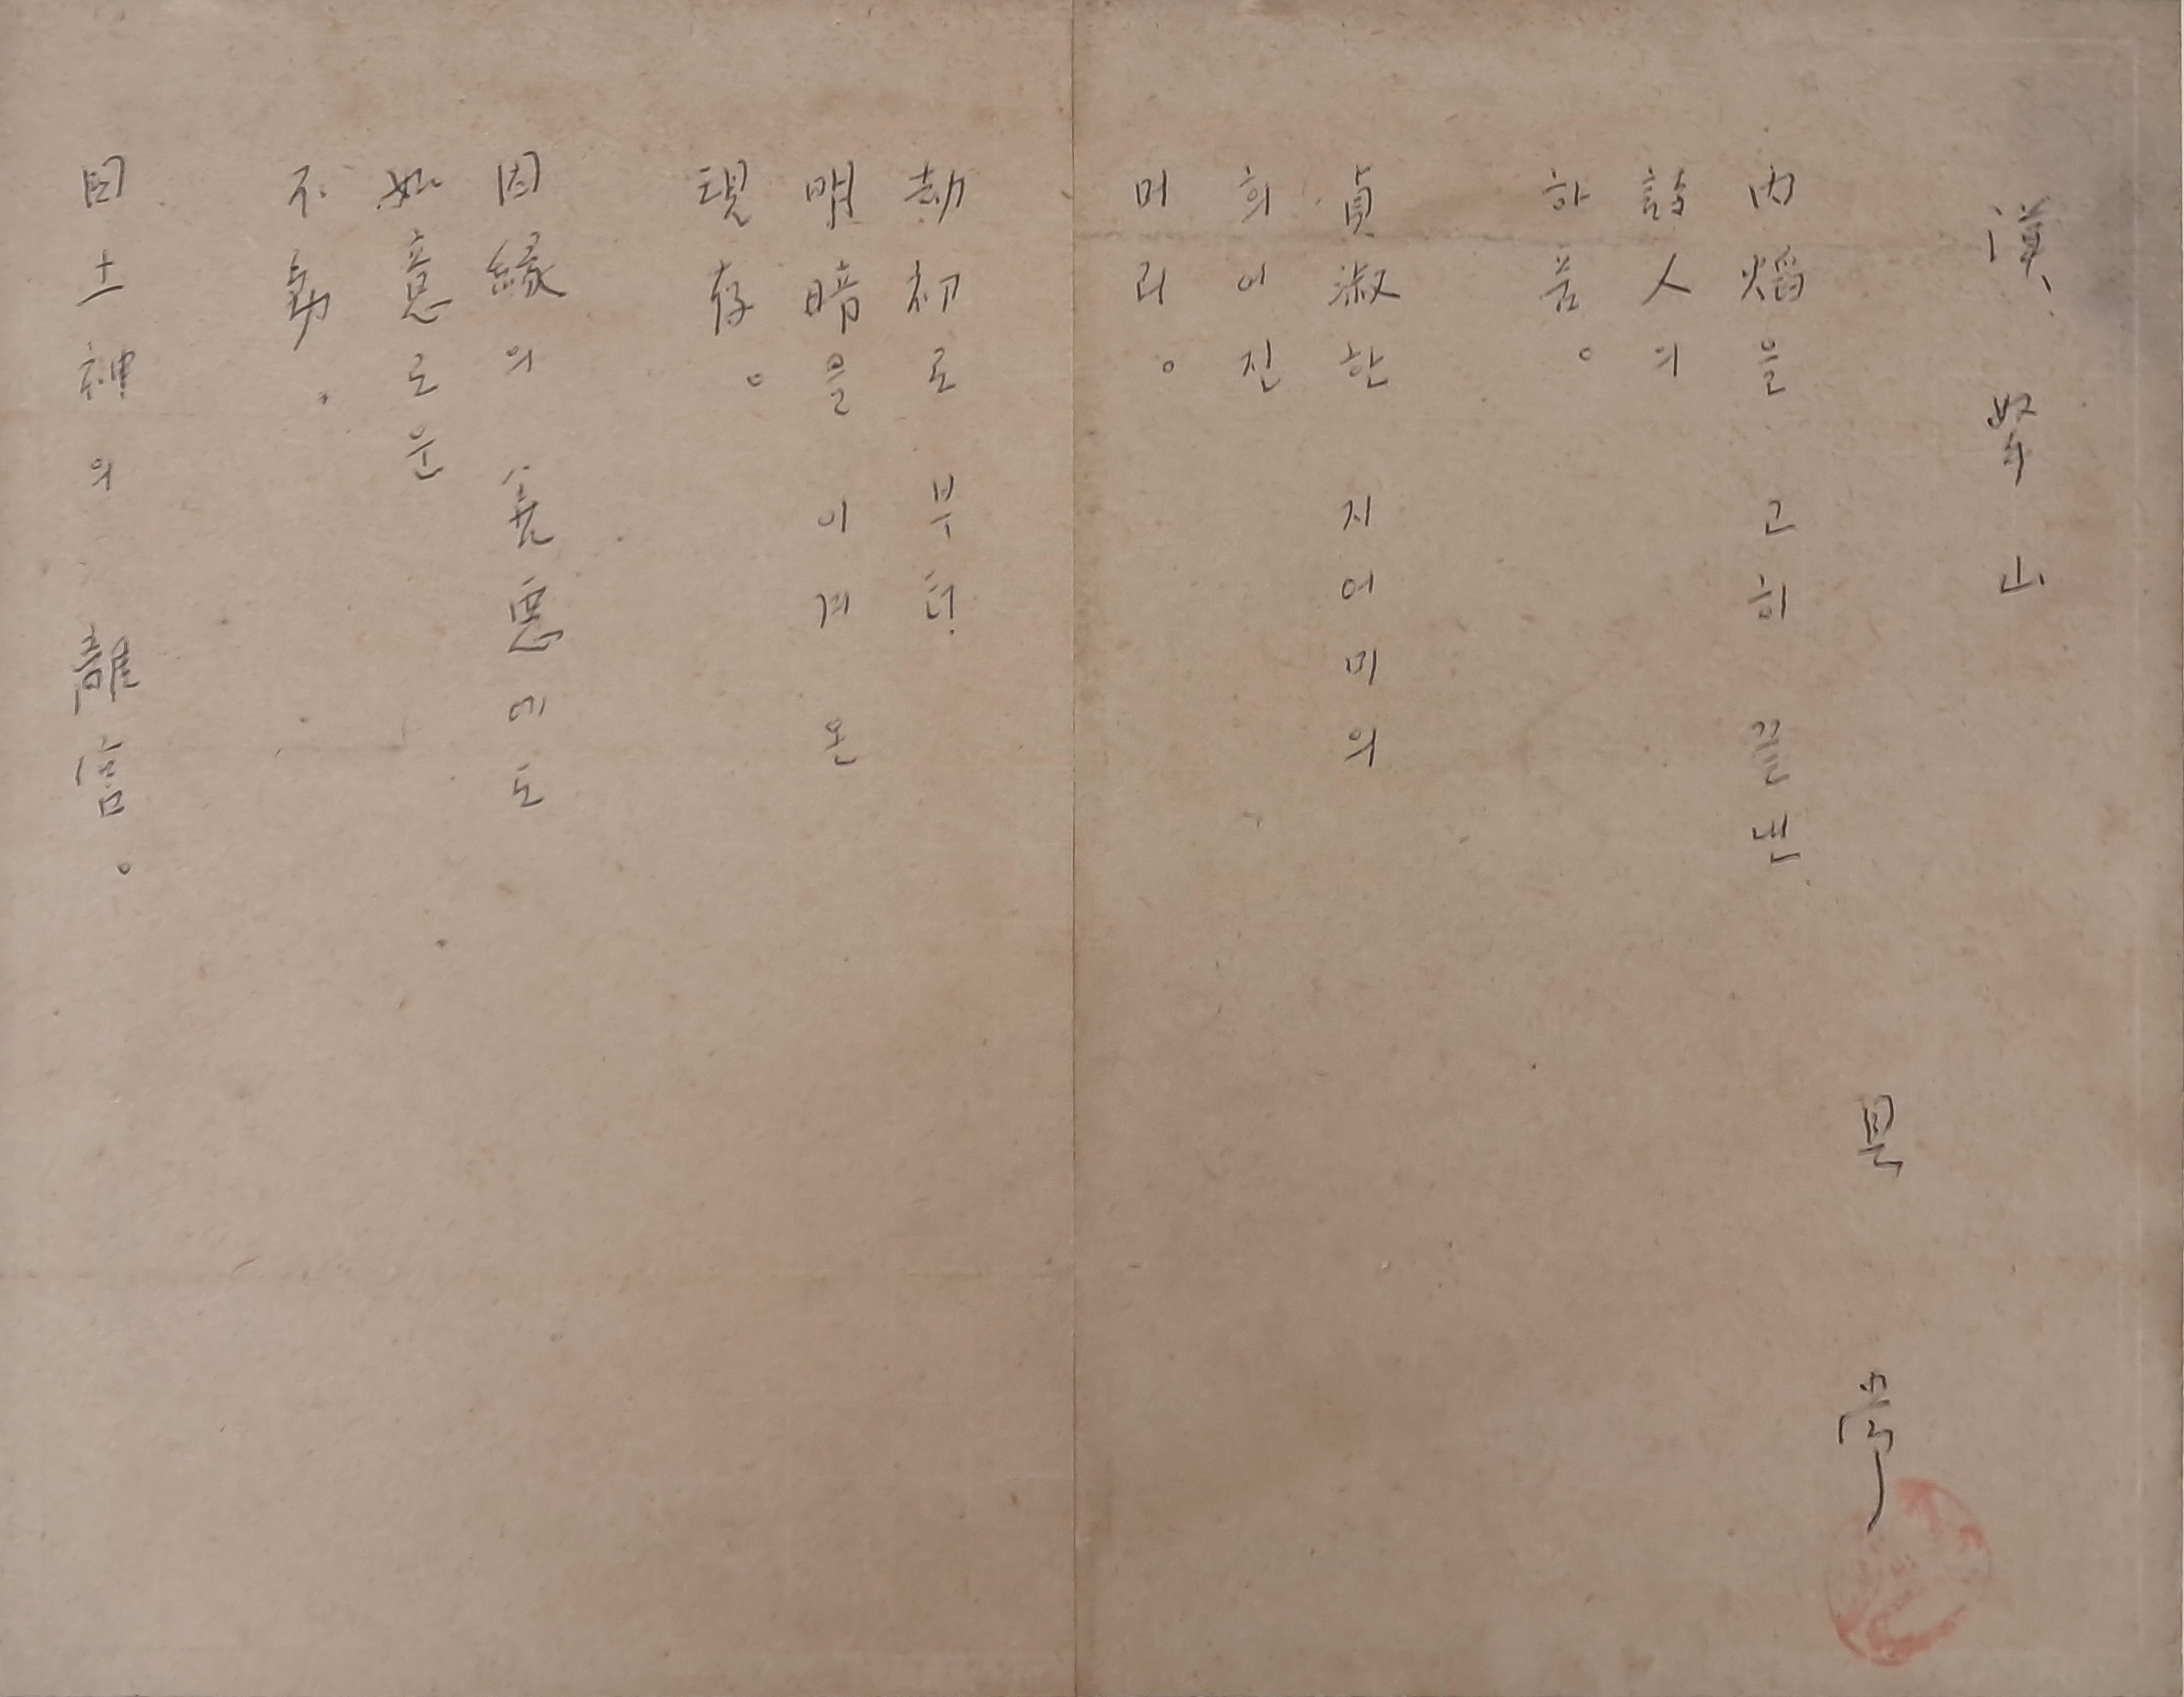 漢拏山
具常
內熖을 고히 끝낸
詩人의
하품。
貞淑한 지어미의
희어진
머리。
劫初로 부터
明暗을 이겨 온
現存。
因緣의 善惡에도
如意로운
不動。
国土神의 離宮。